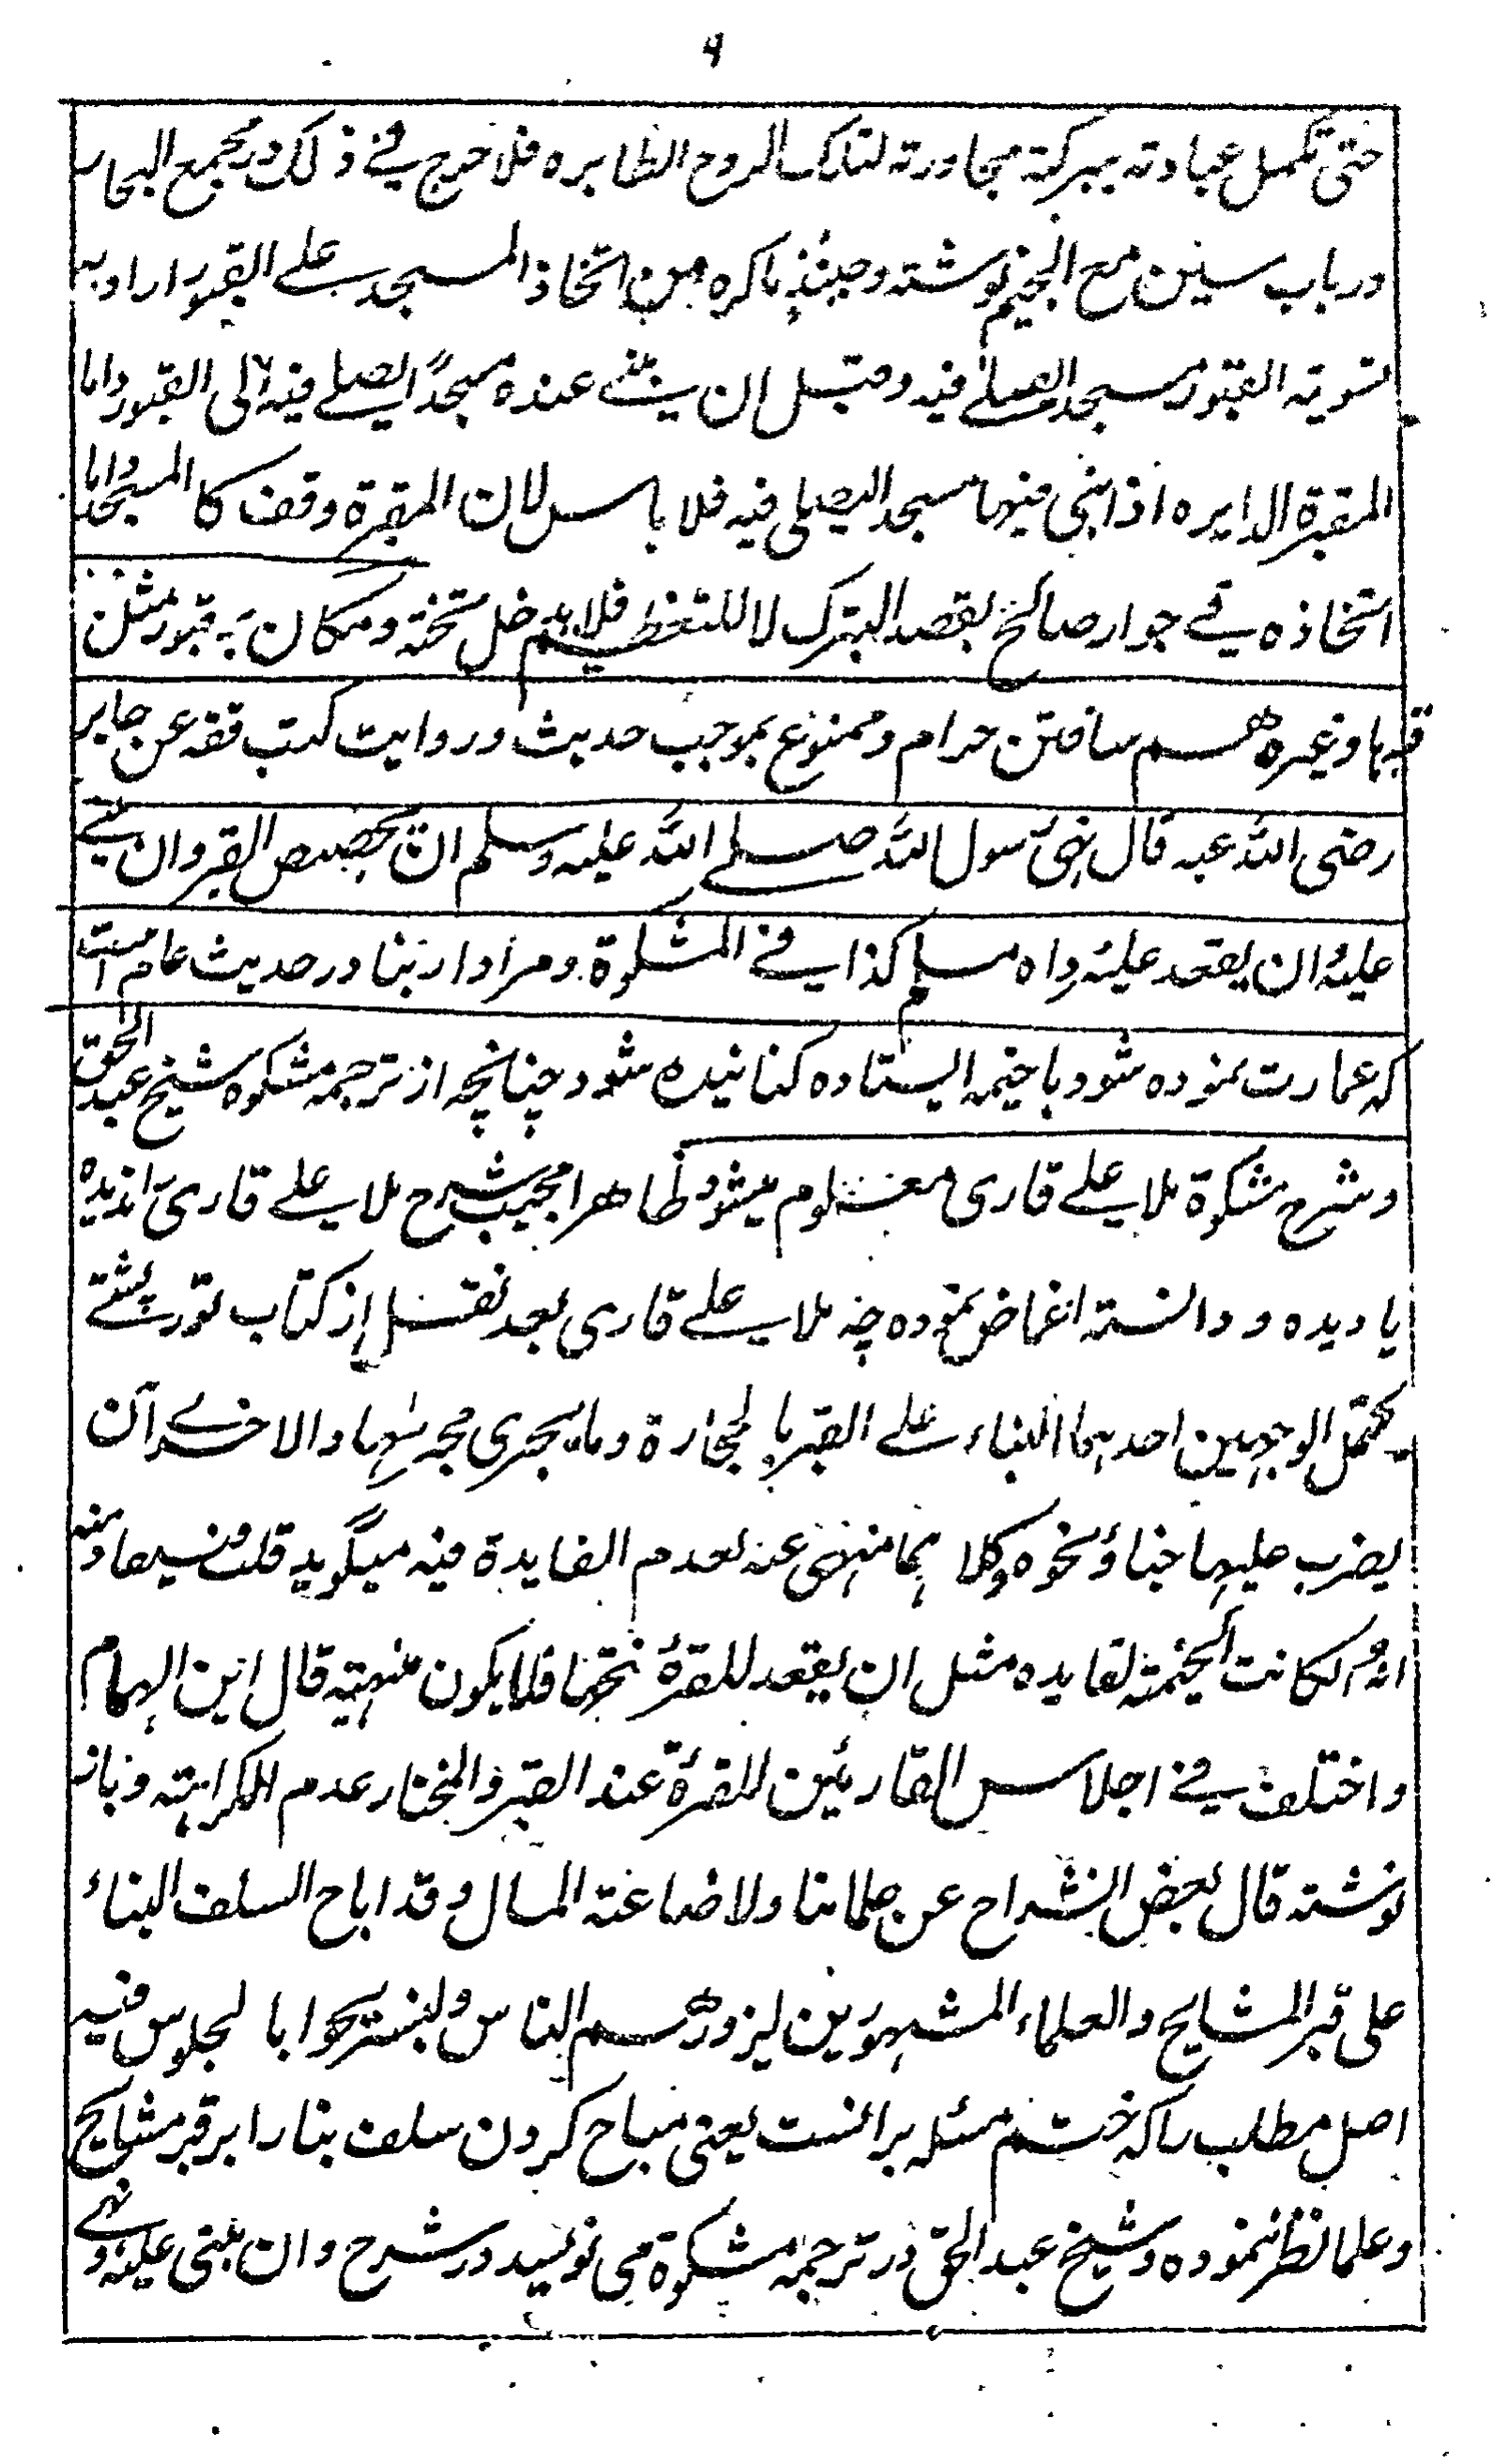 ۹
حتی تکمل عبادته ببرکة مجاورته لتلک الروح الطاہرہ فلا حرج فے ذلک ودر مجمع البحار
در باب سین مع الجیم نوشتہ وحینئذ ماکرہ من اتخاذ المسجد علے القبور ارادبہ
تسویة القبور مسجدا یصلے فیہ وقبل ان یبنے عندہ مسجدًا یصلے فیہ الی القبور واما
المقبرة الدایرہ اذا بنی فیها مسجد الیصلی فیہ فلا باس لان المقبرة وقف کا المسجد واما
اتخاذہ فے جوار صالح بقصد التبرک لا للتعظیم فلا یدخل تحتہ ومکان بہ قبور مثلن
قبہا وغیرہ ہم ساختن حرام وممنوع بموجب حدیث وروایت کتب فقہ عن جابر
رضی اللہ عنہ قال نہیٰ رسول اللہ صلے اللہ علیہ وسلم ان یجصص القبر وان یبنے
علیہ وان یقعد علیہ رواہ مسلم کذا فے المشکوة ومراد از بنا در حدیث عام است
کہ عمارت نمودہ شود یا خیمہ ایستادہ کنانیدہ شود چنانچہ از ترجمہ مشکوہ شیخ عبد الحق
وشرح مشکوة ملا علے قاری معلوم میشود ظاهرا مجیب شرح ملا علے قاری را ندیدہ
یا دیدہ و دانستہ اغماض نمودہ چہ ملا علے قاری بعد نقل از کتاب تورپشتے
یحتمل الوجہین احدہما البناء علے القبر با لحجارة وما یجری مجرٰہا والاخرے ان
یضرب علیہا خباؤ نحوہ وکلا ہما منہی عنہ لعدم الفایدة فیہ میگوید قلت فیستفاد منہ
انہ لو کانت الخیمتہ لفایدہ مثل ان یقعد للقرۂ تحتہا فلا یکون منہیتہ قال ابن الہمام
واختلف فے اجلاس القارئین للقرۂة عند القبر والمختار عدم الکراہتہ وباز
نوشتہ قال بعض الشراح عن علمائنا ولا ضاعتہ المال وقد اباح السلف البناء
علی قبر المشایخ والعلماء المشہورین لیزورہم الناس ولیستریحوا با لجلوس فیہ
اصل مطلب را کہ ختم مسئلہ برانست یعنی مباح کردن سلف بنا را بر قبر مشایخ
وعلما نظر ننمودہ وشیخ عبد الحق در ترجمہ مشکوة می نویسد در شرح وان یبنی علیہ ونہے